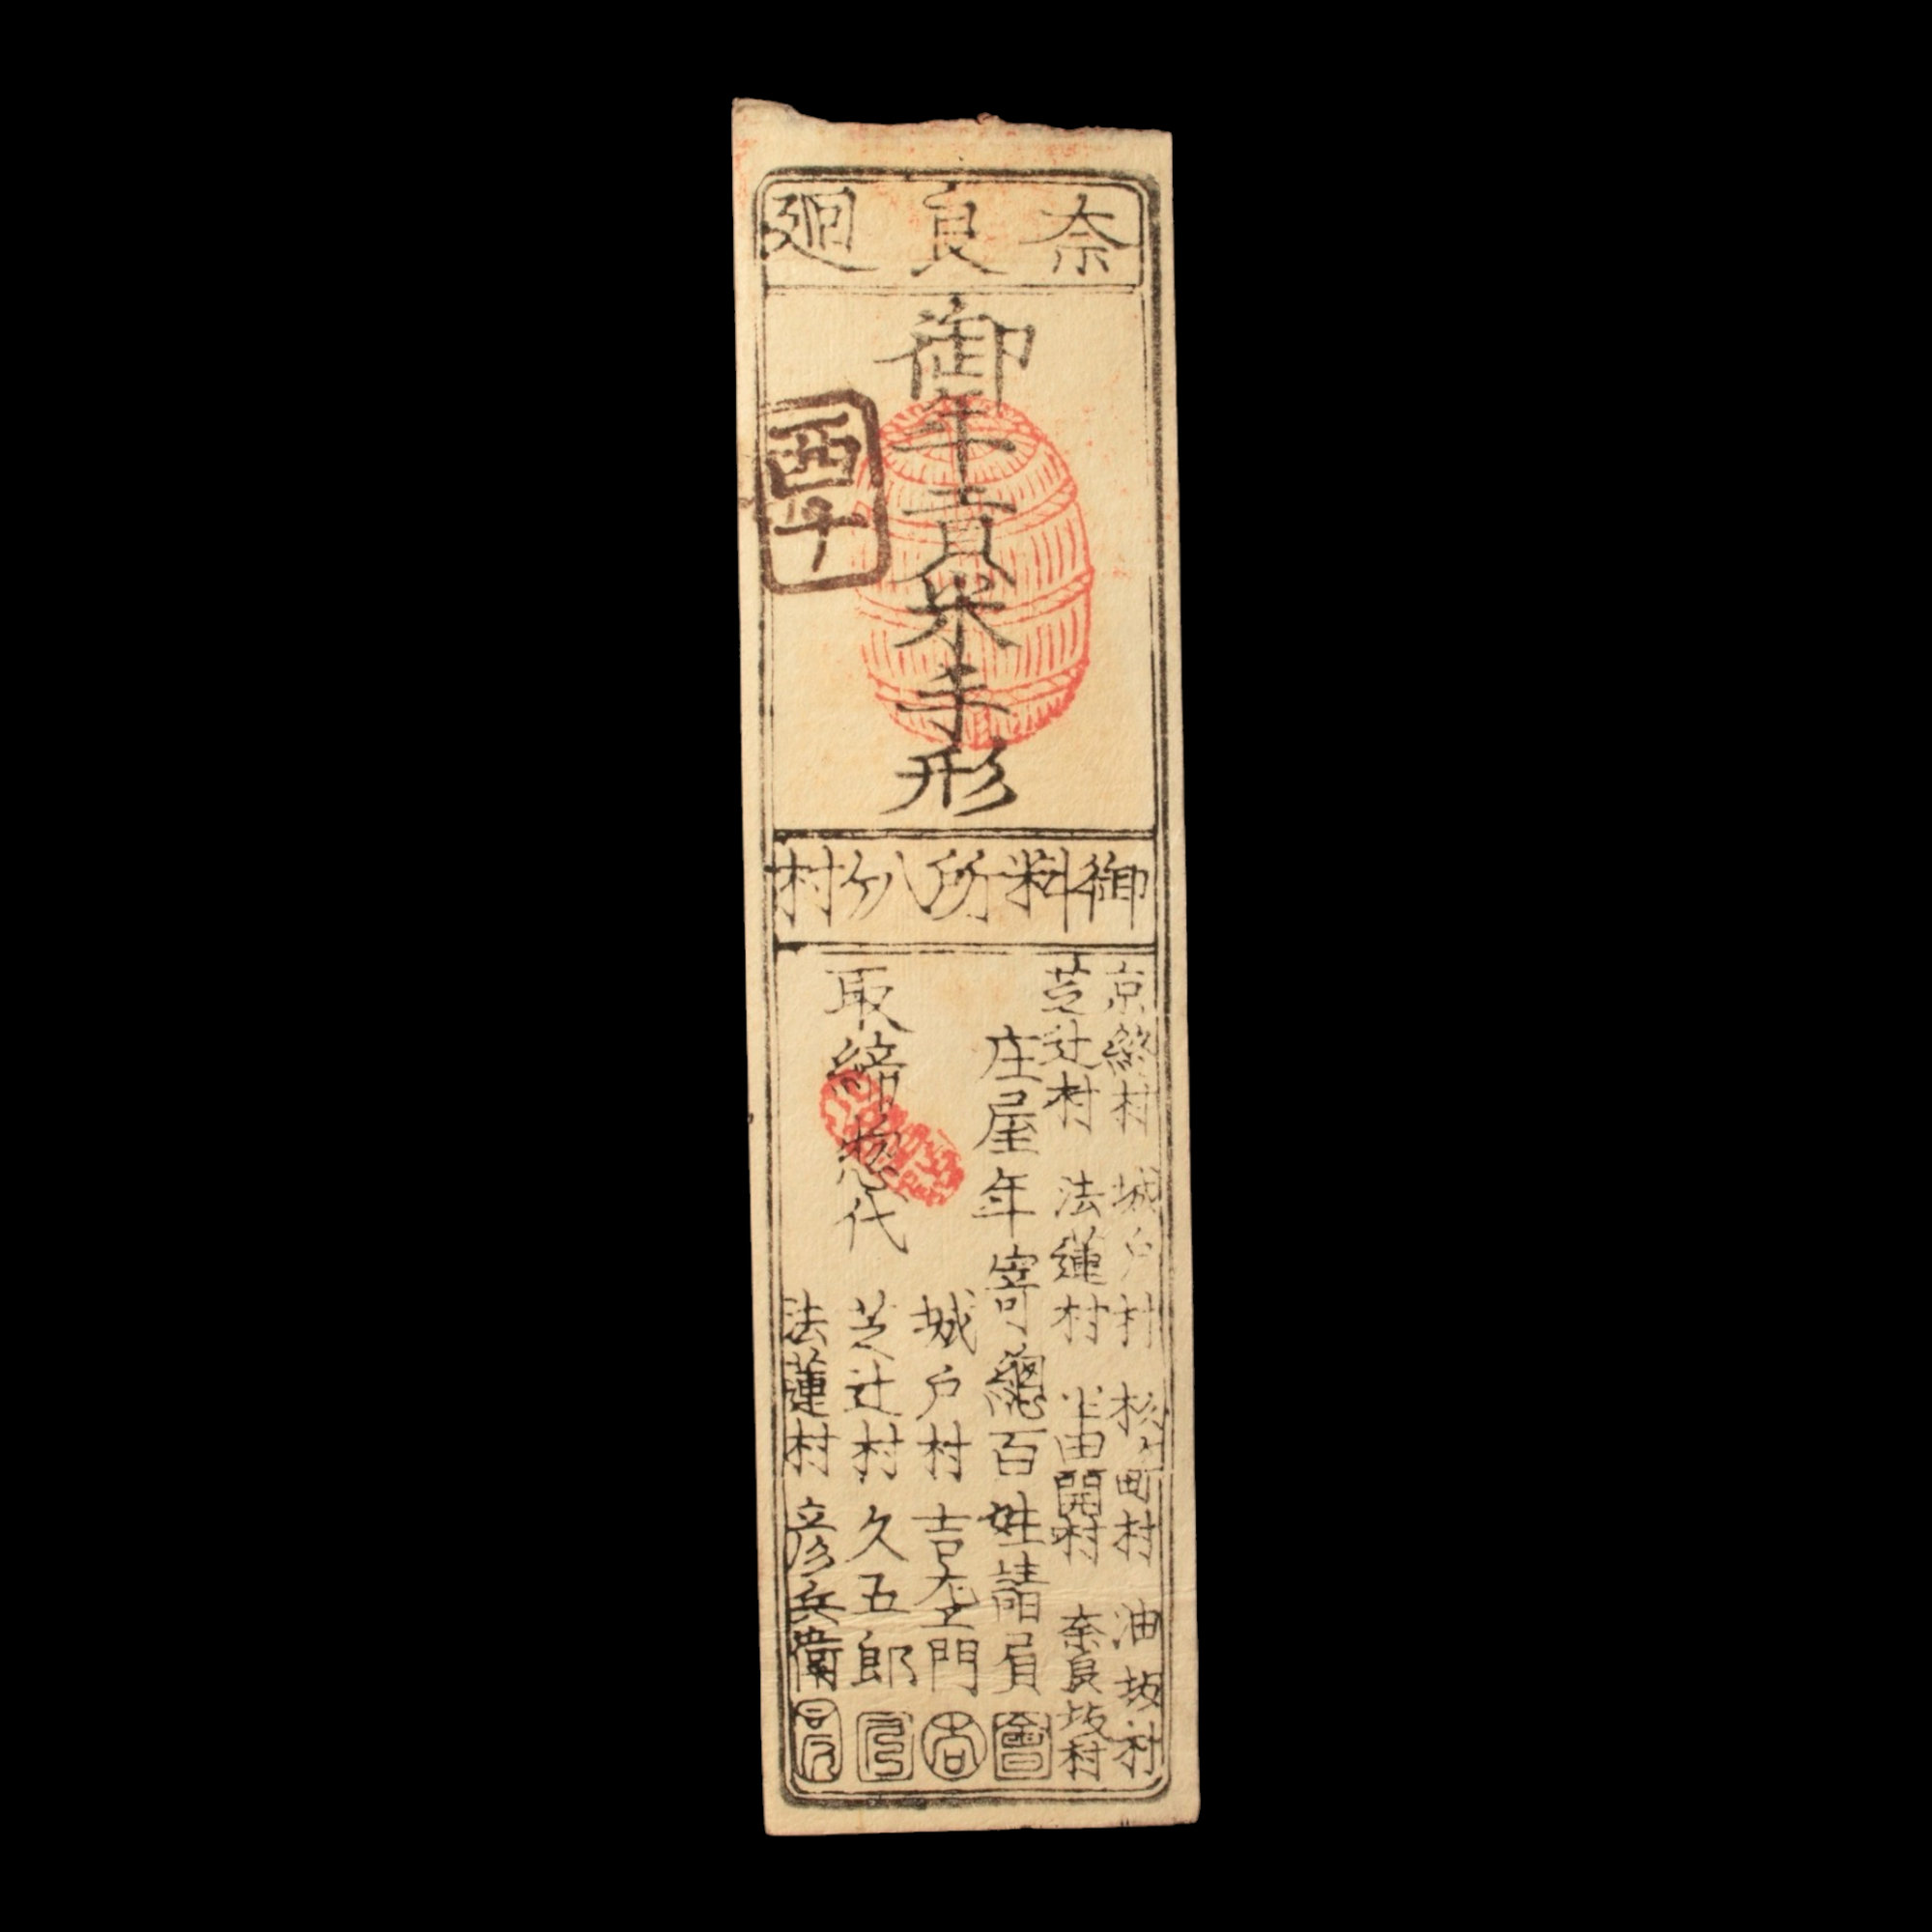 奈良廻
御年貢米手形
西手
御料所八ケ村
京終村 城戸村 杉ケ町村 油坂村
芝辻村 法蓮村 半田開村 奈良坂村
庄屋年寄總百姓請負
取締惣代
城戸村 吉左エ門
芝辻村 久五郎
法蓮村 彦兵衛